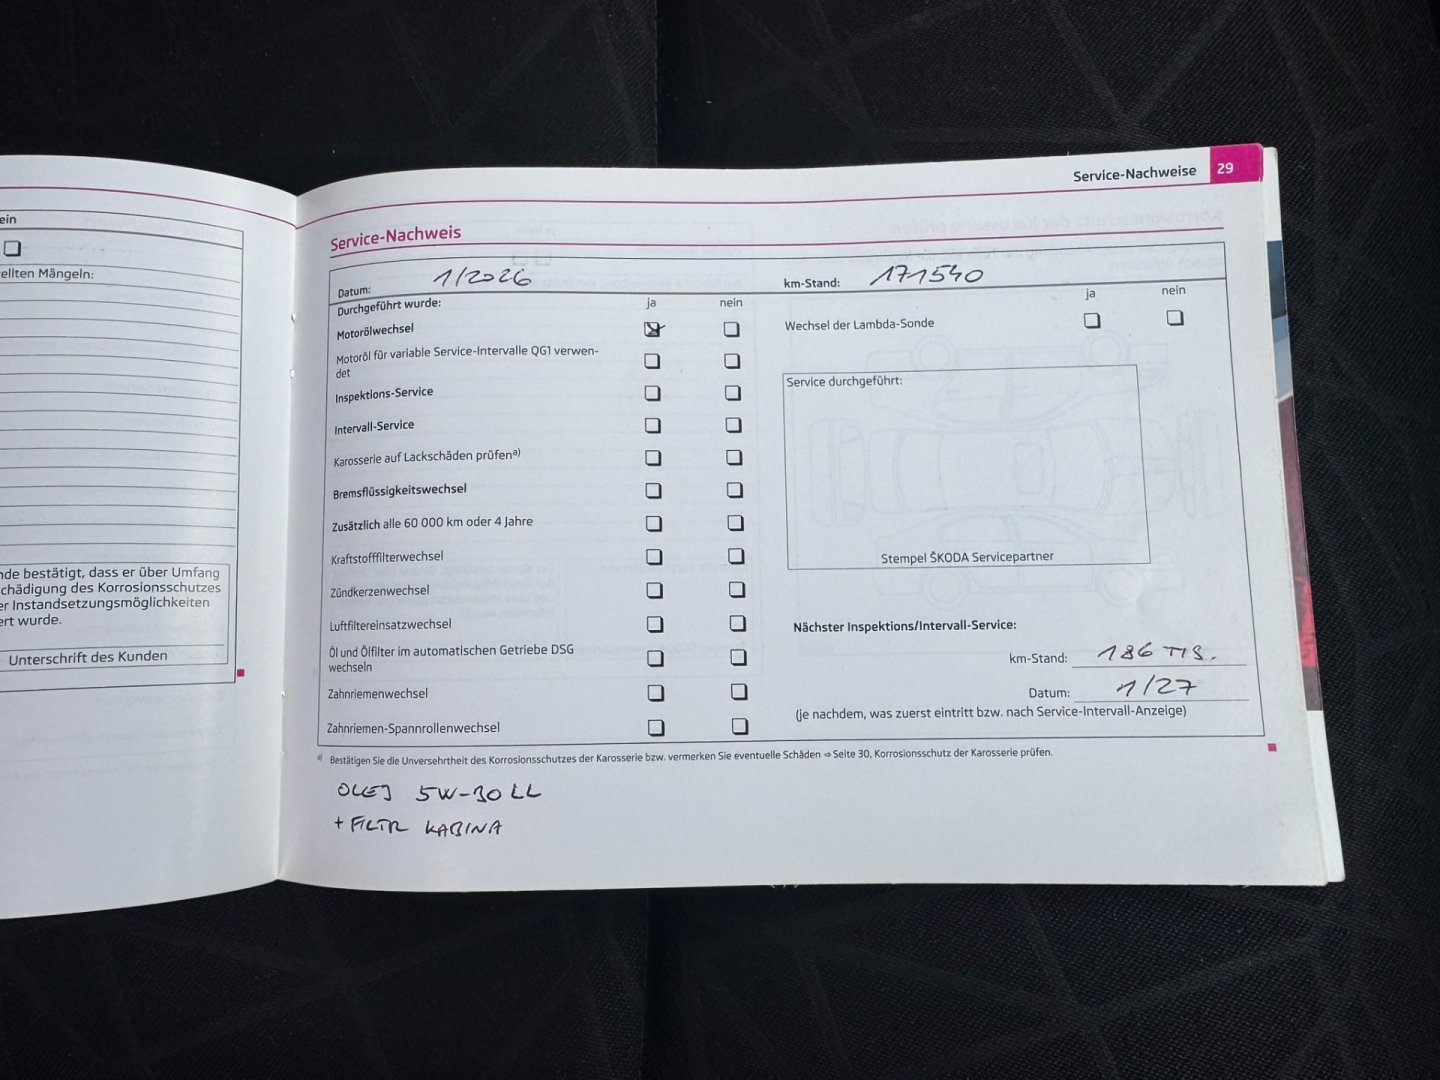 ein
ellten Mängeln:
nde bestätigt, dass er über Umfang
chädigung des Korrosionsschutzes
er Instandsetzungsmöglichkeiten
ert wurde.
Unterschrift des Kunden
Service-Nachweise 29
Service-Nachweis
Datum: 1/2026 km-Stand: 171540
Durchgeführt wurde: ja nein ja nein
Motorölwechsel
Wechsel der Lambda-Sonde
Motoröl für variable Service-Intervalle QG1 verwen-
det
Inspektions-Service
Intervall-Service
Karosserie auf Lackschäden prüfen a)
Bremsflüssigkeitswechsel
Zusätzlich alle 60 000 km oder 4 Jahre
Kraftstofffilterwechsel
Zündkerzenwechsel
Luftfiltereinsatzwechsel
Öl und Ölfilter im automatischen Getriebe DSG
wechseln
Zahnriemenwechsel
Zahnriemen-Spannrollenwechsel
Service durchgeführt:
Stempel ŠKODA Servicepartner
Nächster Inspektions/Intervall-Service:
km-Stand: 186 TIS.
Datum: 1/27
(je nachdem, was zuerst eintritt bzw. nach Service-Intervall-Anzeige)
a) Bestätigen Sie die Unversehrtheit des Korrosionsschutzes der Karosserie bzw. vermerken Sie eventuelle Schäden ⇒ Seite 30, Korrosionsschutz der Karosserie prüfen.
OLEJ 5W-30 LL
+ FILTR KABINA